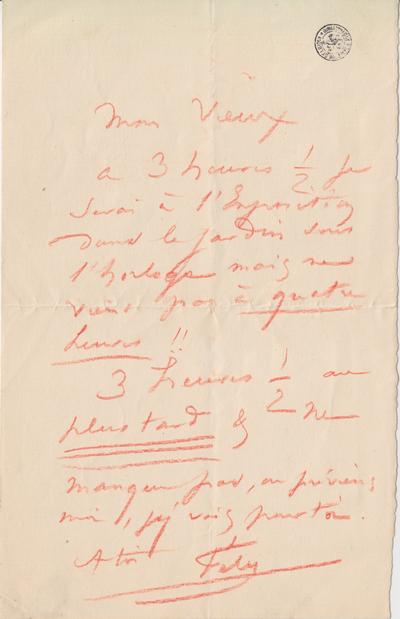 Mon Vieux
a 3 heures 1/2 je
serai à l'Exposition
dans le jardin sous
l'horloge mais ne
viens pas à quatre
heures !!
3 heures 1/2 au
plus tard & ne
manque pas, ou préviens
moi, j'y vais pour toi.
A toi Fely